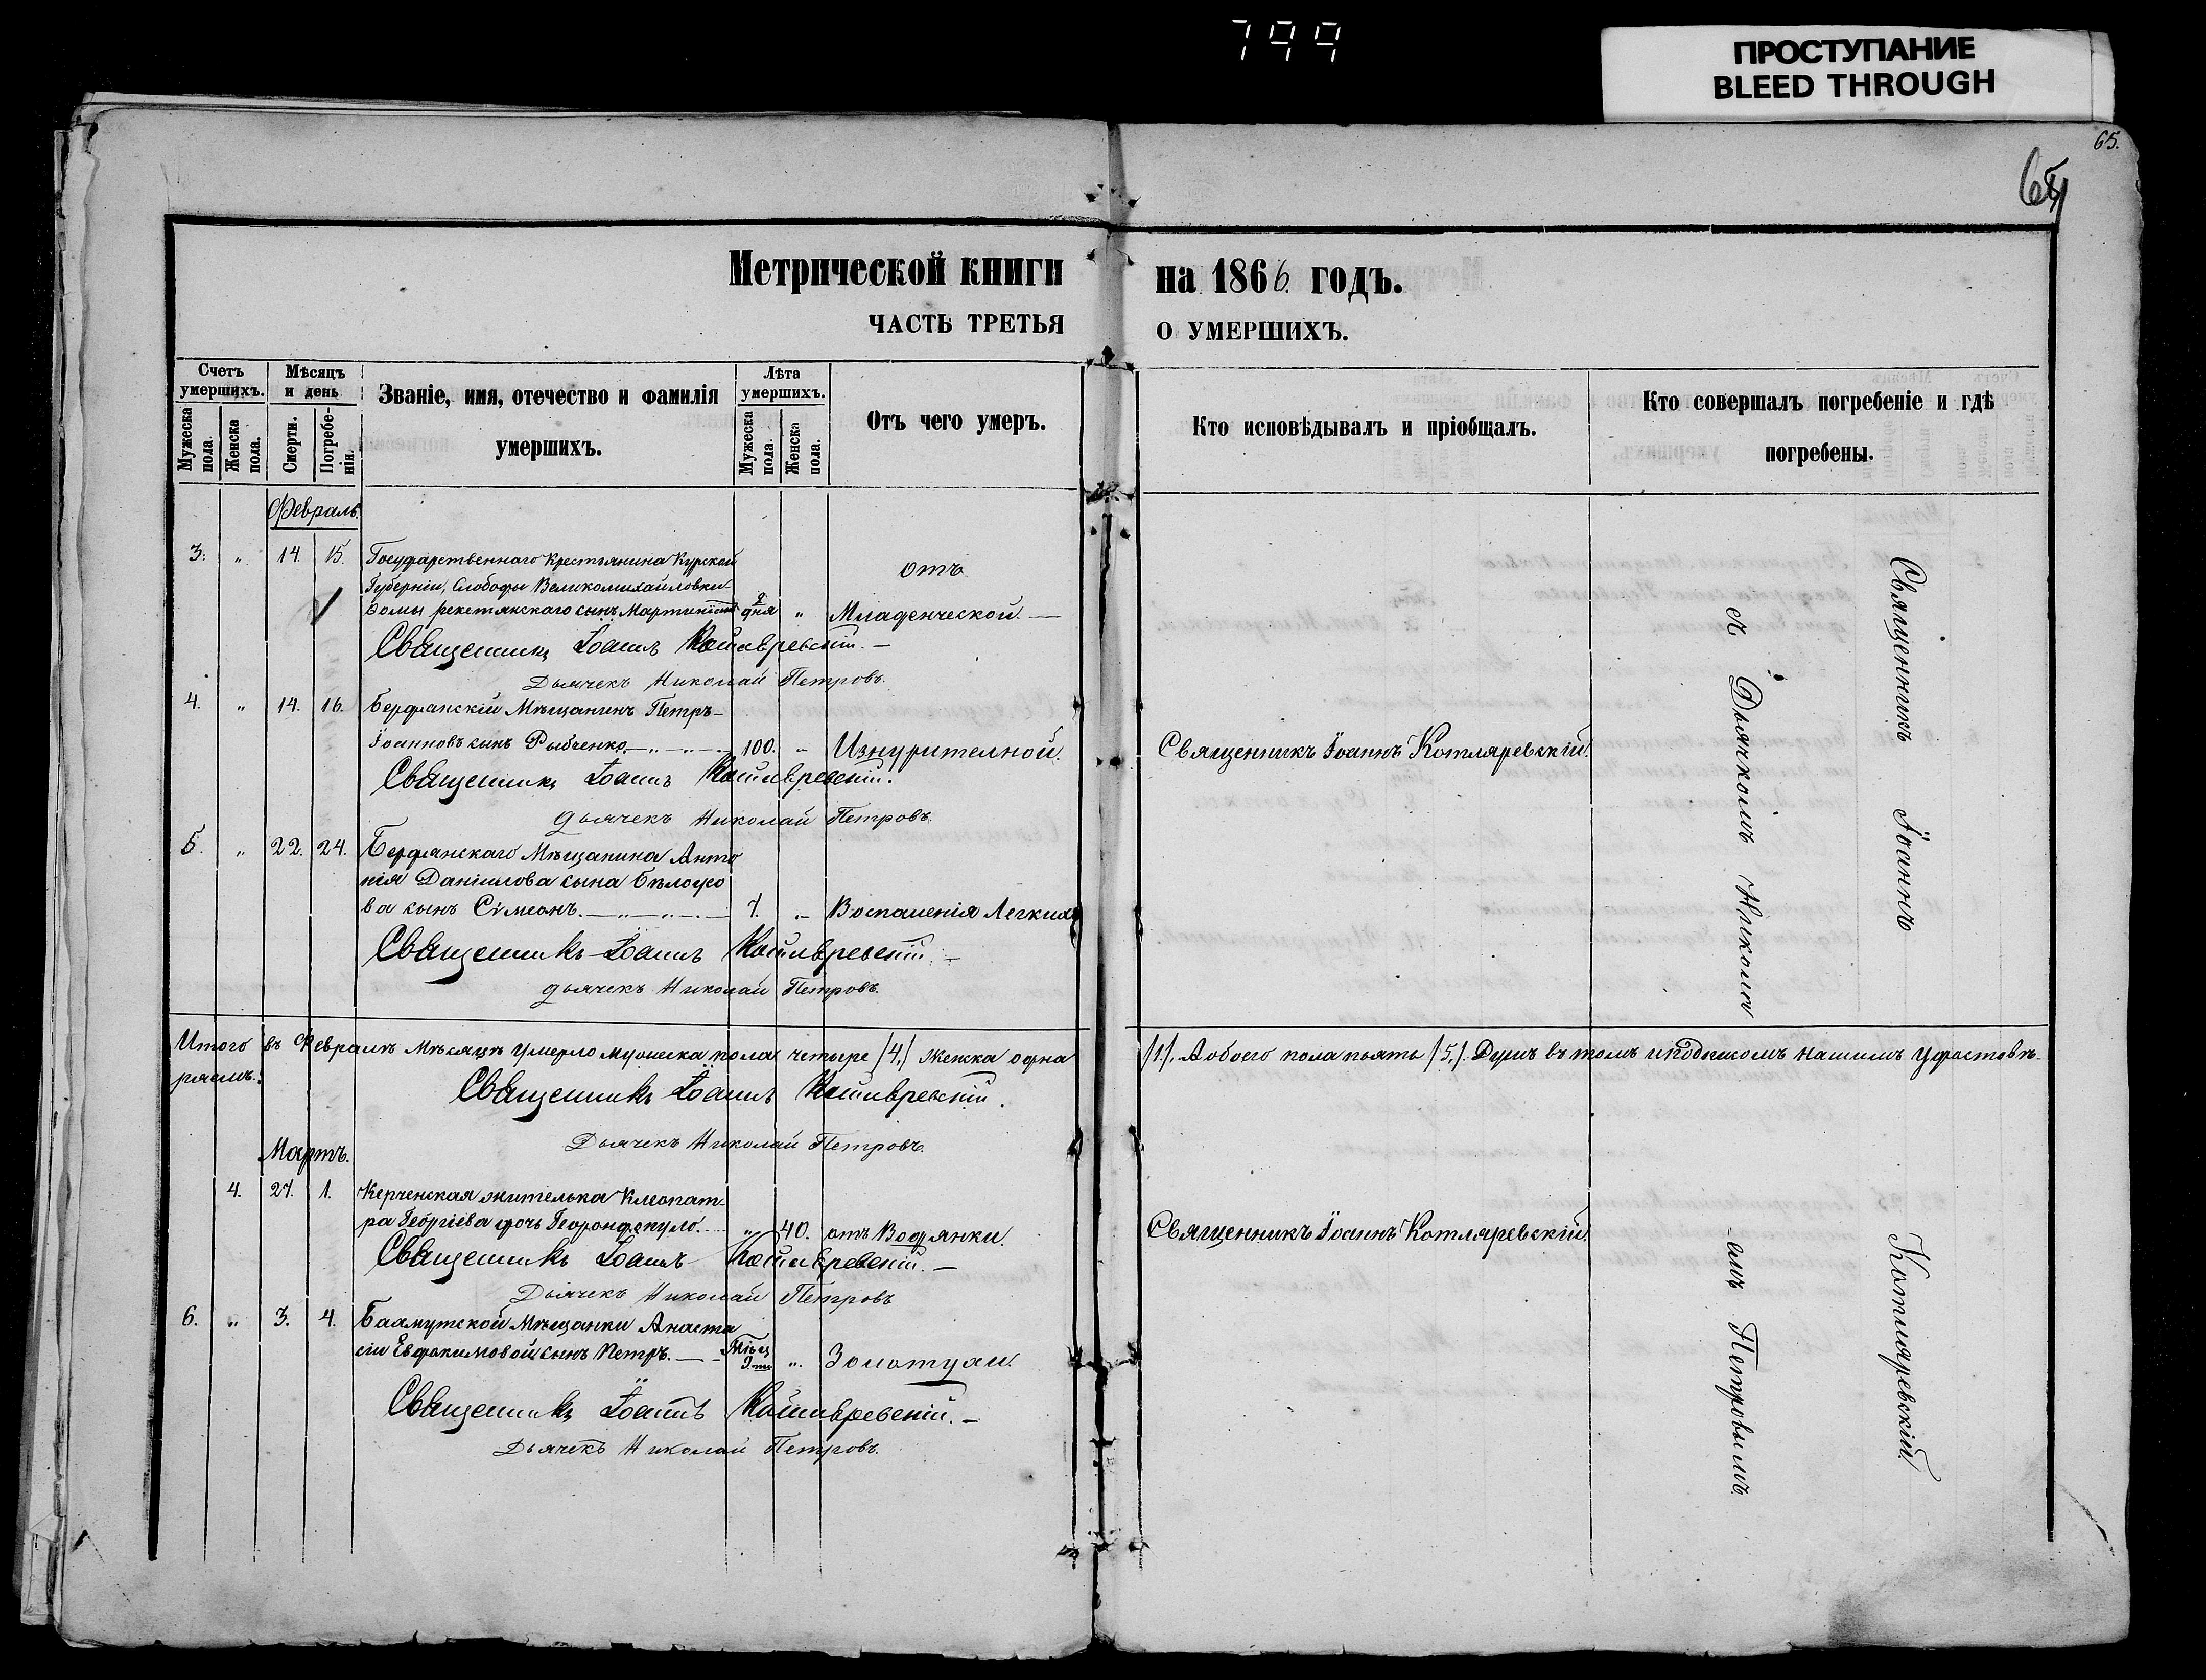 799
ПРОСТУПАНИЕ
BLEED THROUGH
65.
Метрической книги на 1866. годъ.
ЧАСТЬ ТРЕТЬЯ О УМЕРШИХЪ.
Счетъ умершихъ.
Мужеска пола.
Женска пола.
Мѣсяцъ и день
Смерти.
Погребенія.
Званіе, имя, отечество и фамилія умершихъ.
Лѣта умершихъ.
Мужеска пола.
Женска пола.
Отъ чего умеръ.
Кто исповѣдывалъ и пріобщалъ.
Кто совершалъ погребеніе и гдѣ погребены.
Февраль.
3. " 14. 15. Государственнаго Крестьянина Курской
Губерніи, Слободы Великомихайловки
сынъ Мартиніанъ дня " отъ Младенческой.
Священникъ Іоаннъ Котляревскій.
Дьячекъ Николай Петровъ.
4. " 14. 16. Бердянскій Мѣщанинъ Петръ
Іоанновъ сынъ Рыбченко. 100. " Изнурителной. Священникъ Іоаннъ Котляревскій.
Священникъ Іоаннъ Котляревскій.
Дьячекъ Николай Петровъ.
5. " 22. 24. Бердянскаго Мѣщанина Анто
нія Даніилова сына Бѣлоусо
ва сынъ Сѵмеонъ. 7. " Воспаленія Легкихъ
Священникъ Іоаннъ Котляревскій.
Дьячекъ Николай Петровъ.
Итого въ Февралѣ Мѣсяцѣ умерло мужеска пола четыре /4./ женска одна /1./. А обоего пола пять /5./. Душъ въ томъ и подписомъ нашимъ удостовѣ-
ряемъ.
Священникъ Іоаннъ Котляревскій.
Дьячекъ Николай Петровъ.
Мартъ.
4. 27. 1. Керченская жителька Клеопат-
ра Георгіева дочь Герондопуло. " 40. отъ Водянки. Священникъ Іоаннъ Котляревскій.
Священникъ Іоаннъ Котляревскій.
Дьячекъ Николай Петровъ
6. " 3. 4. Бахмутской Мѣщанки Анаста
сіи Евдокимовой сынъ Петръ. Мѣсяц 9.ти " Золотухи.
Священникъ Іоаннъ Котляревскій.
Дьячекъ Николай Петровъ.
Священникъ Іоаннъ Котляревскій
съ Дьячкомъ Николаемъ Петровымъ.